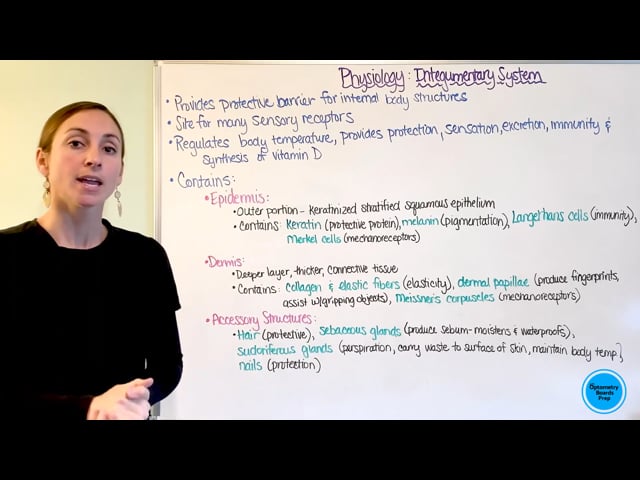 Physiology: Integumentary System
• Provides protective barrier for internal body structures
• Site for many sensory receptors
• Regulates body temperature, provides protection, sensation, excretion, immunity &
synthesis of vitamin D
• Contains:
• Epidermis:
• Outer portion - Keratinized stratified squamous epithelium
• Contains: Keratin (protective protein), melanin (pigmentation), Langerhans cells (immunity),
Merkel cells (mechanoreceptors)
• Dermis:
• Deeper layer, thicker, connective tissue
• Contains: collagen & elastic fibers (elasticity), dermal papillae (produce fingerprints,
assist w/gripping objects), Meissner's corpuscles (mechanoreptors)
• Accessory Structures:
• Hair (protective), sebaceous glands (produce sebum - moistens & waterproofs),
sudoriferous glands (perspiration, carry waste to surface of skin, maintain body temp),
nails (protection)
Optometry
Boards
Prep